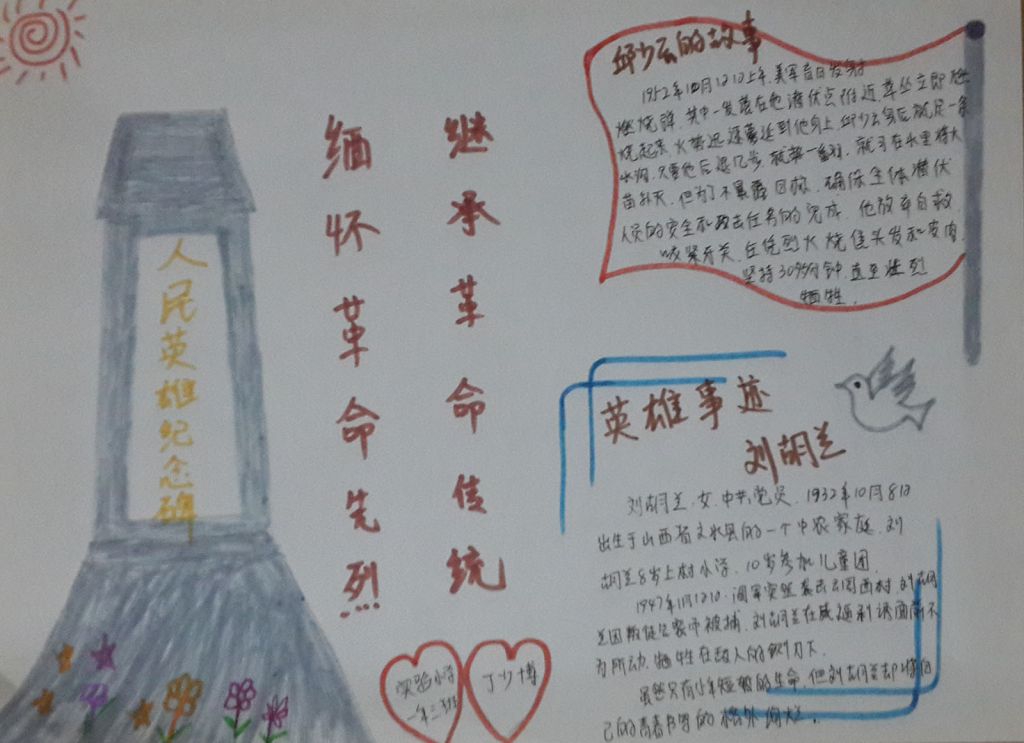 人民英雄纪念碑
缅怀革命先烈
继承革命传统
邱少云的故事
1952年10月12日上午,美军盲目发射
燃烧弹,其中一发落在他潜伏点附近,草丛立即燃
烧起来,火势迅速蔓延到他身上,邱少云身后就是一条
水沟,只要他后退几步,就势一翻,就可在水里将火
苗扑灭,但为了不暴露目标,确保全体潜伏
人员的安全和攻击任务的完成,他放弃自救
咬紧牙关,任凭烈火烧焦头发和皮肉,
坚持30多分钟,直至壮烈
牺牲。
英雄事迹
刘胡兰
刘胡兰,女,中共党员,1932年10月8日
出生于山西省文水县的一个中农家庭,刘
胡兰8岁上村小学,10岁参加儿童团。
1947年1月12日,阎军突然袭击云周西村,刘胡
兰因叛徒告密而被捕,刘胡兰在威逼利诱面前不
为所动,牺牲在敌人的铡刀下。
虽然只有少年短暂的生命,但刘胡兰却将自
己的青春书写的格外绚烂。
实验小学
一年三班
丁少博